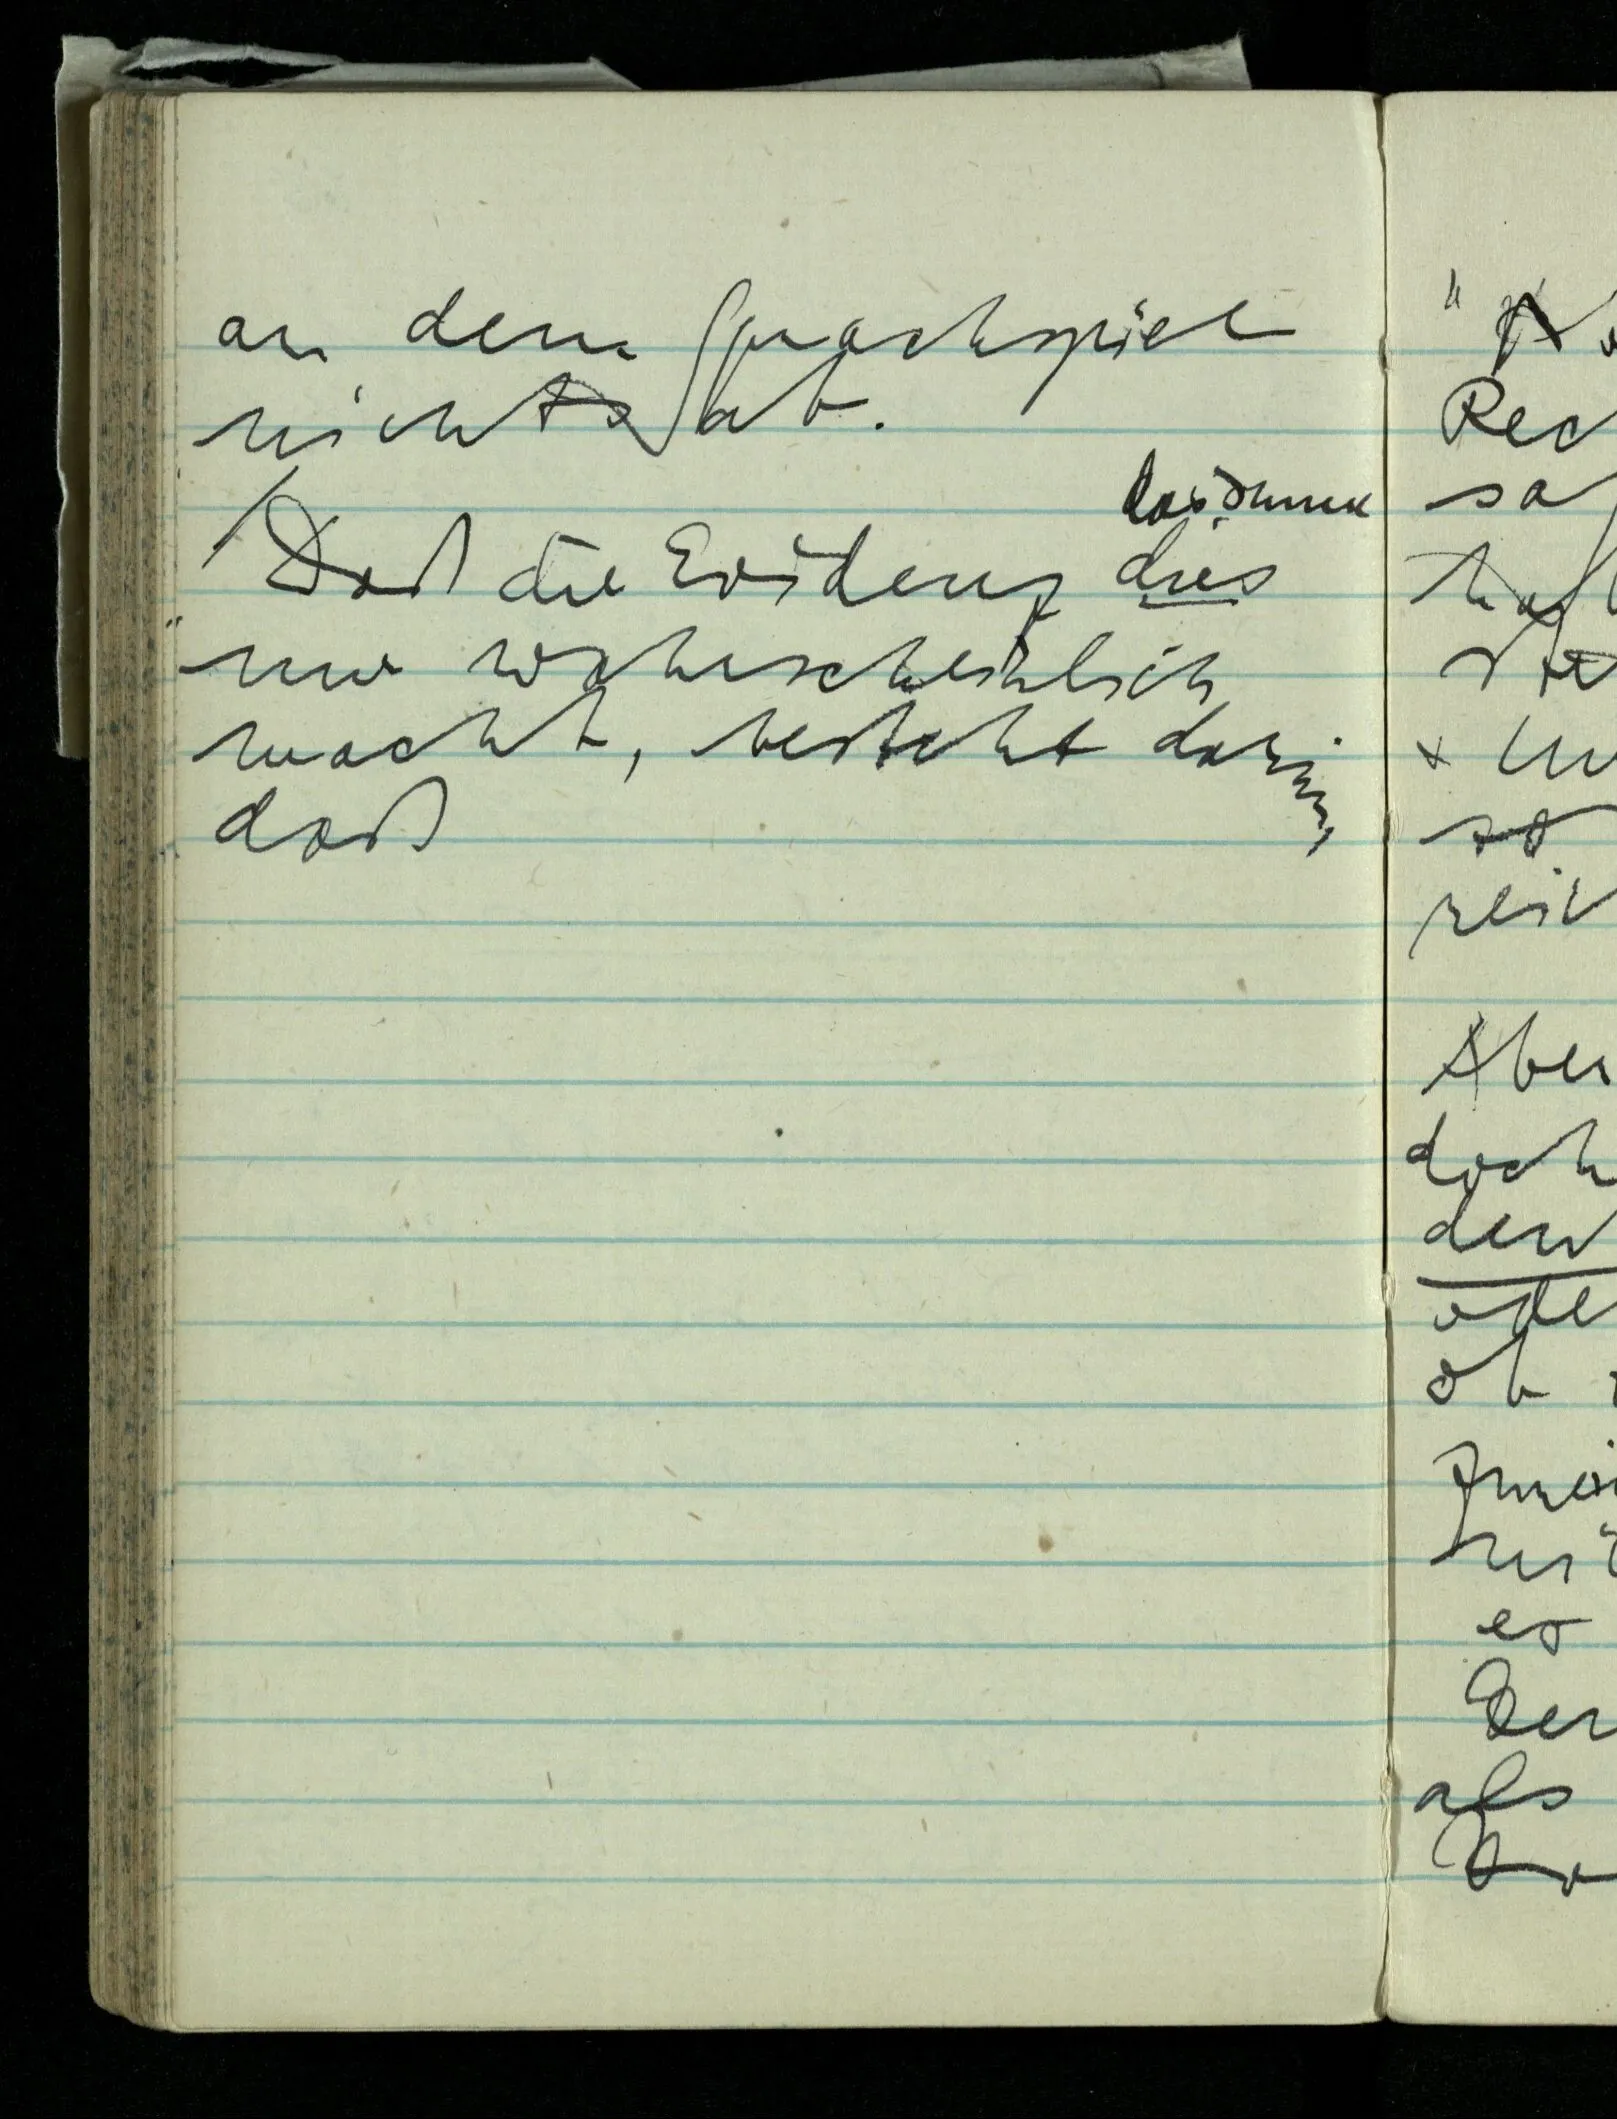 an dem Sprachspiel
nichts ab.
das Innere
Daß die Evidenz dies
nur wahrscheinlich
macht, besteht darin,
daß
Rec
sa
Aber
doch
den
ode
ob
es
Der
als